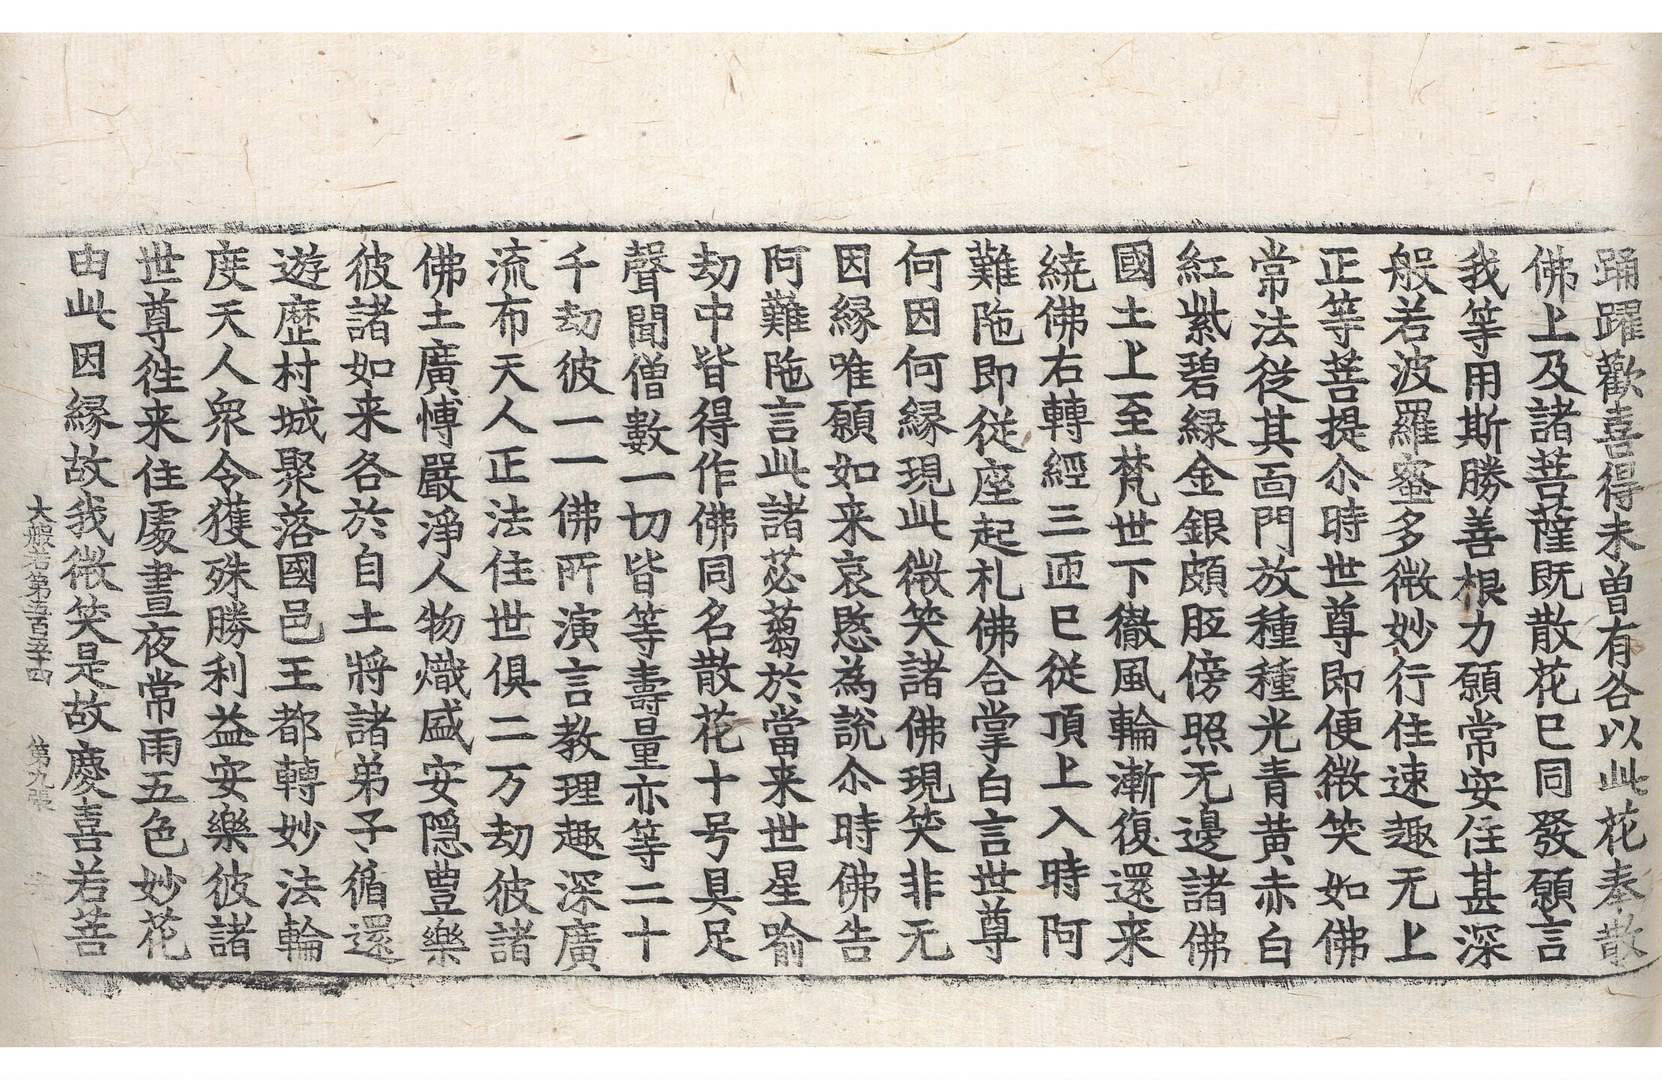 踊躍歡喜得未曽有各以此花奉散
佛上及諸菩薩既散花已同發願言
我等用斯勝善根力願常安住甚深
般若波羅蜜多微妙行住速趣无上
正等菩提尒時世尊即便微笑如佛
常法從其面門放種種光青黄赤白
紅紫碧緑金銀頗胝傍照无邊諸佛
國土上至梵世下徹風輪漸復還来
繞佛右轉經三匝已從頂上入時阿
難陁即從座起礼佛合掌白言世尊
何因何縁現此微笑諸佛現笑非无
因縁唯願如来哀愍為說尒時佛告
阿難陁言此諸苾蒭於當来世星喻
劫中皆得作佛同名散花十号具足
聲聞僧數一切皆等壽量亦等二十
千劫彼一一佛所演言教理趣深廣
流布天人正法住世俱二万劫彼諸
佛土廣愽嚴淨人物熾盛安隠豊樂
彼諸如来各於自土將諸弟子循還
遊歴村城聚落國邑王都轉妙法輪
度天人衆令獲殊勝利益安樂彼諸
世尊徃来住處晝夜常雨五色妙花
由此因縁故我微笑是故慶喜若菩
大般若第五百五十四 第九張